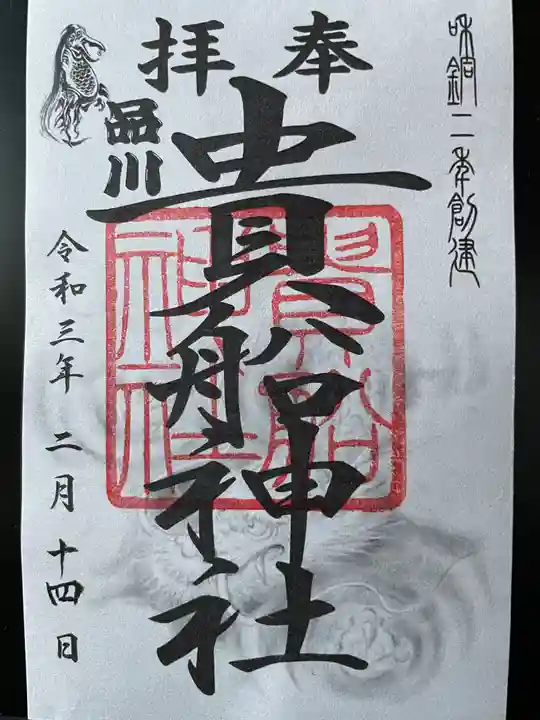 奉拝
和銅二年創建
品川
貴船神社
令和三年 二月 十四日
貴船
神社